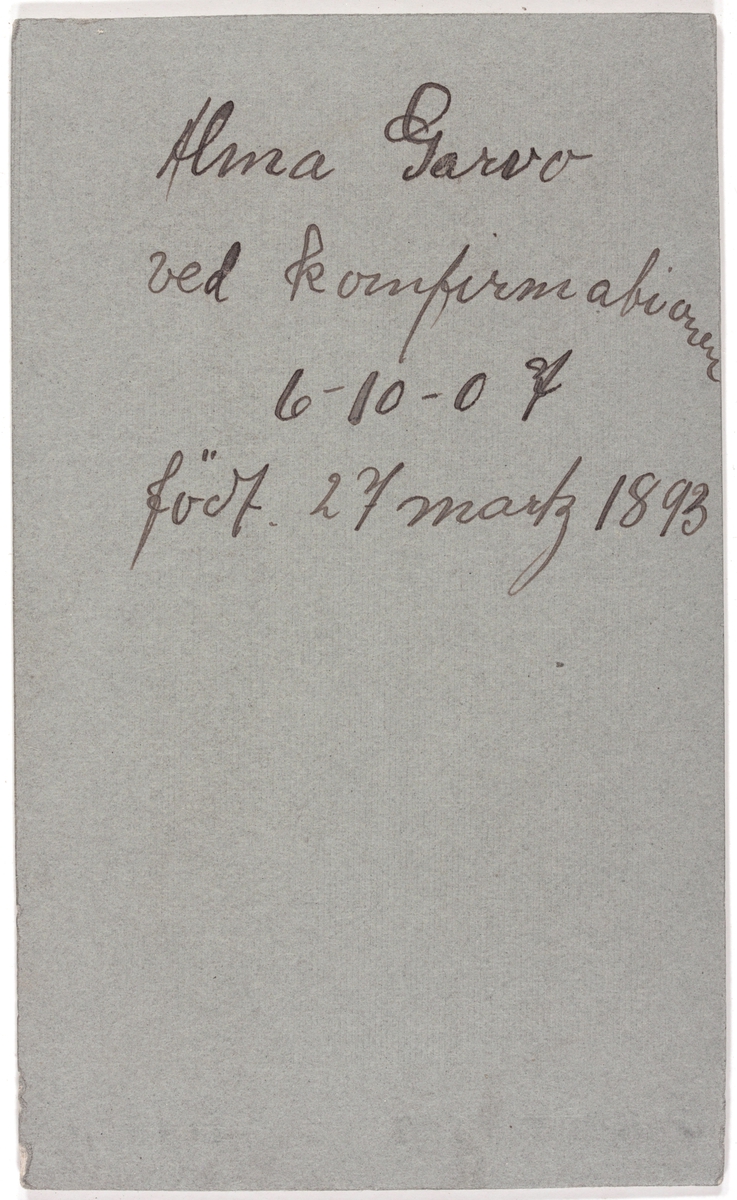 Alma Garvo
ved komfirmationen
6-10-07
födt. 27 martz 1893